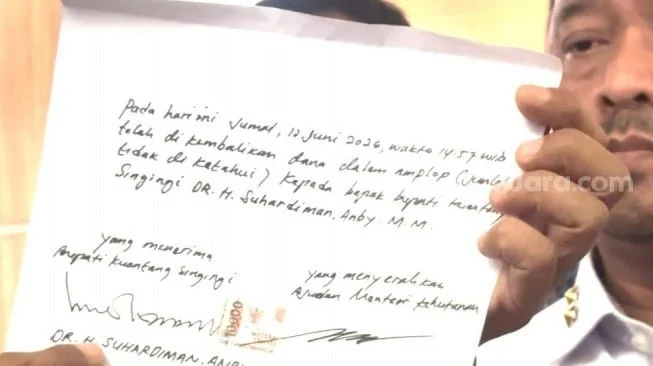 Pada hari ini Jumat, 12 Juni 2026, waktu 14.57 wib
telah di kembalikan dana dalam amplop (jumlah
tidak di ketahui) kepada bapak bupati Kuantan
Singingi DR. H. Suhardiman, Anby. M.M.
yang menerima
Bupati Kuantang Singingi
yang menyerahkan
Ajudan Menteri Kehutanan
10000
DR. H. SUHARDIMAN, ANBY
suara.com